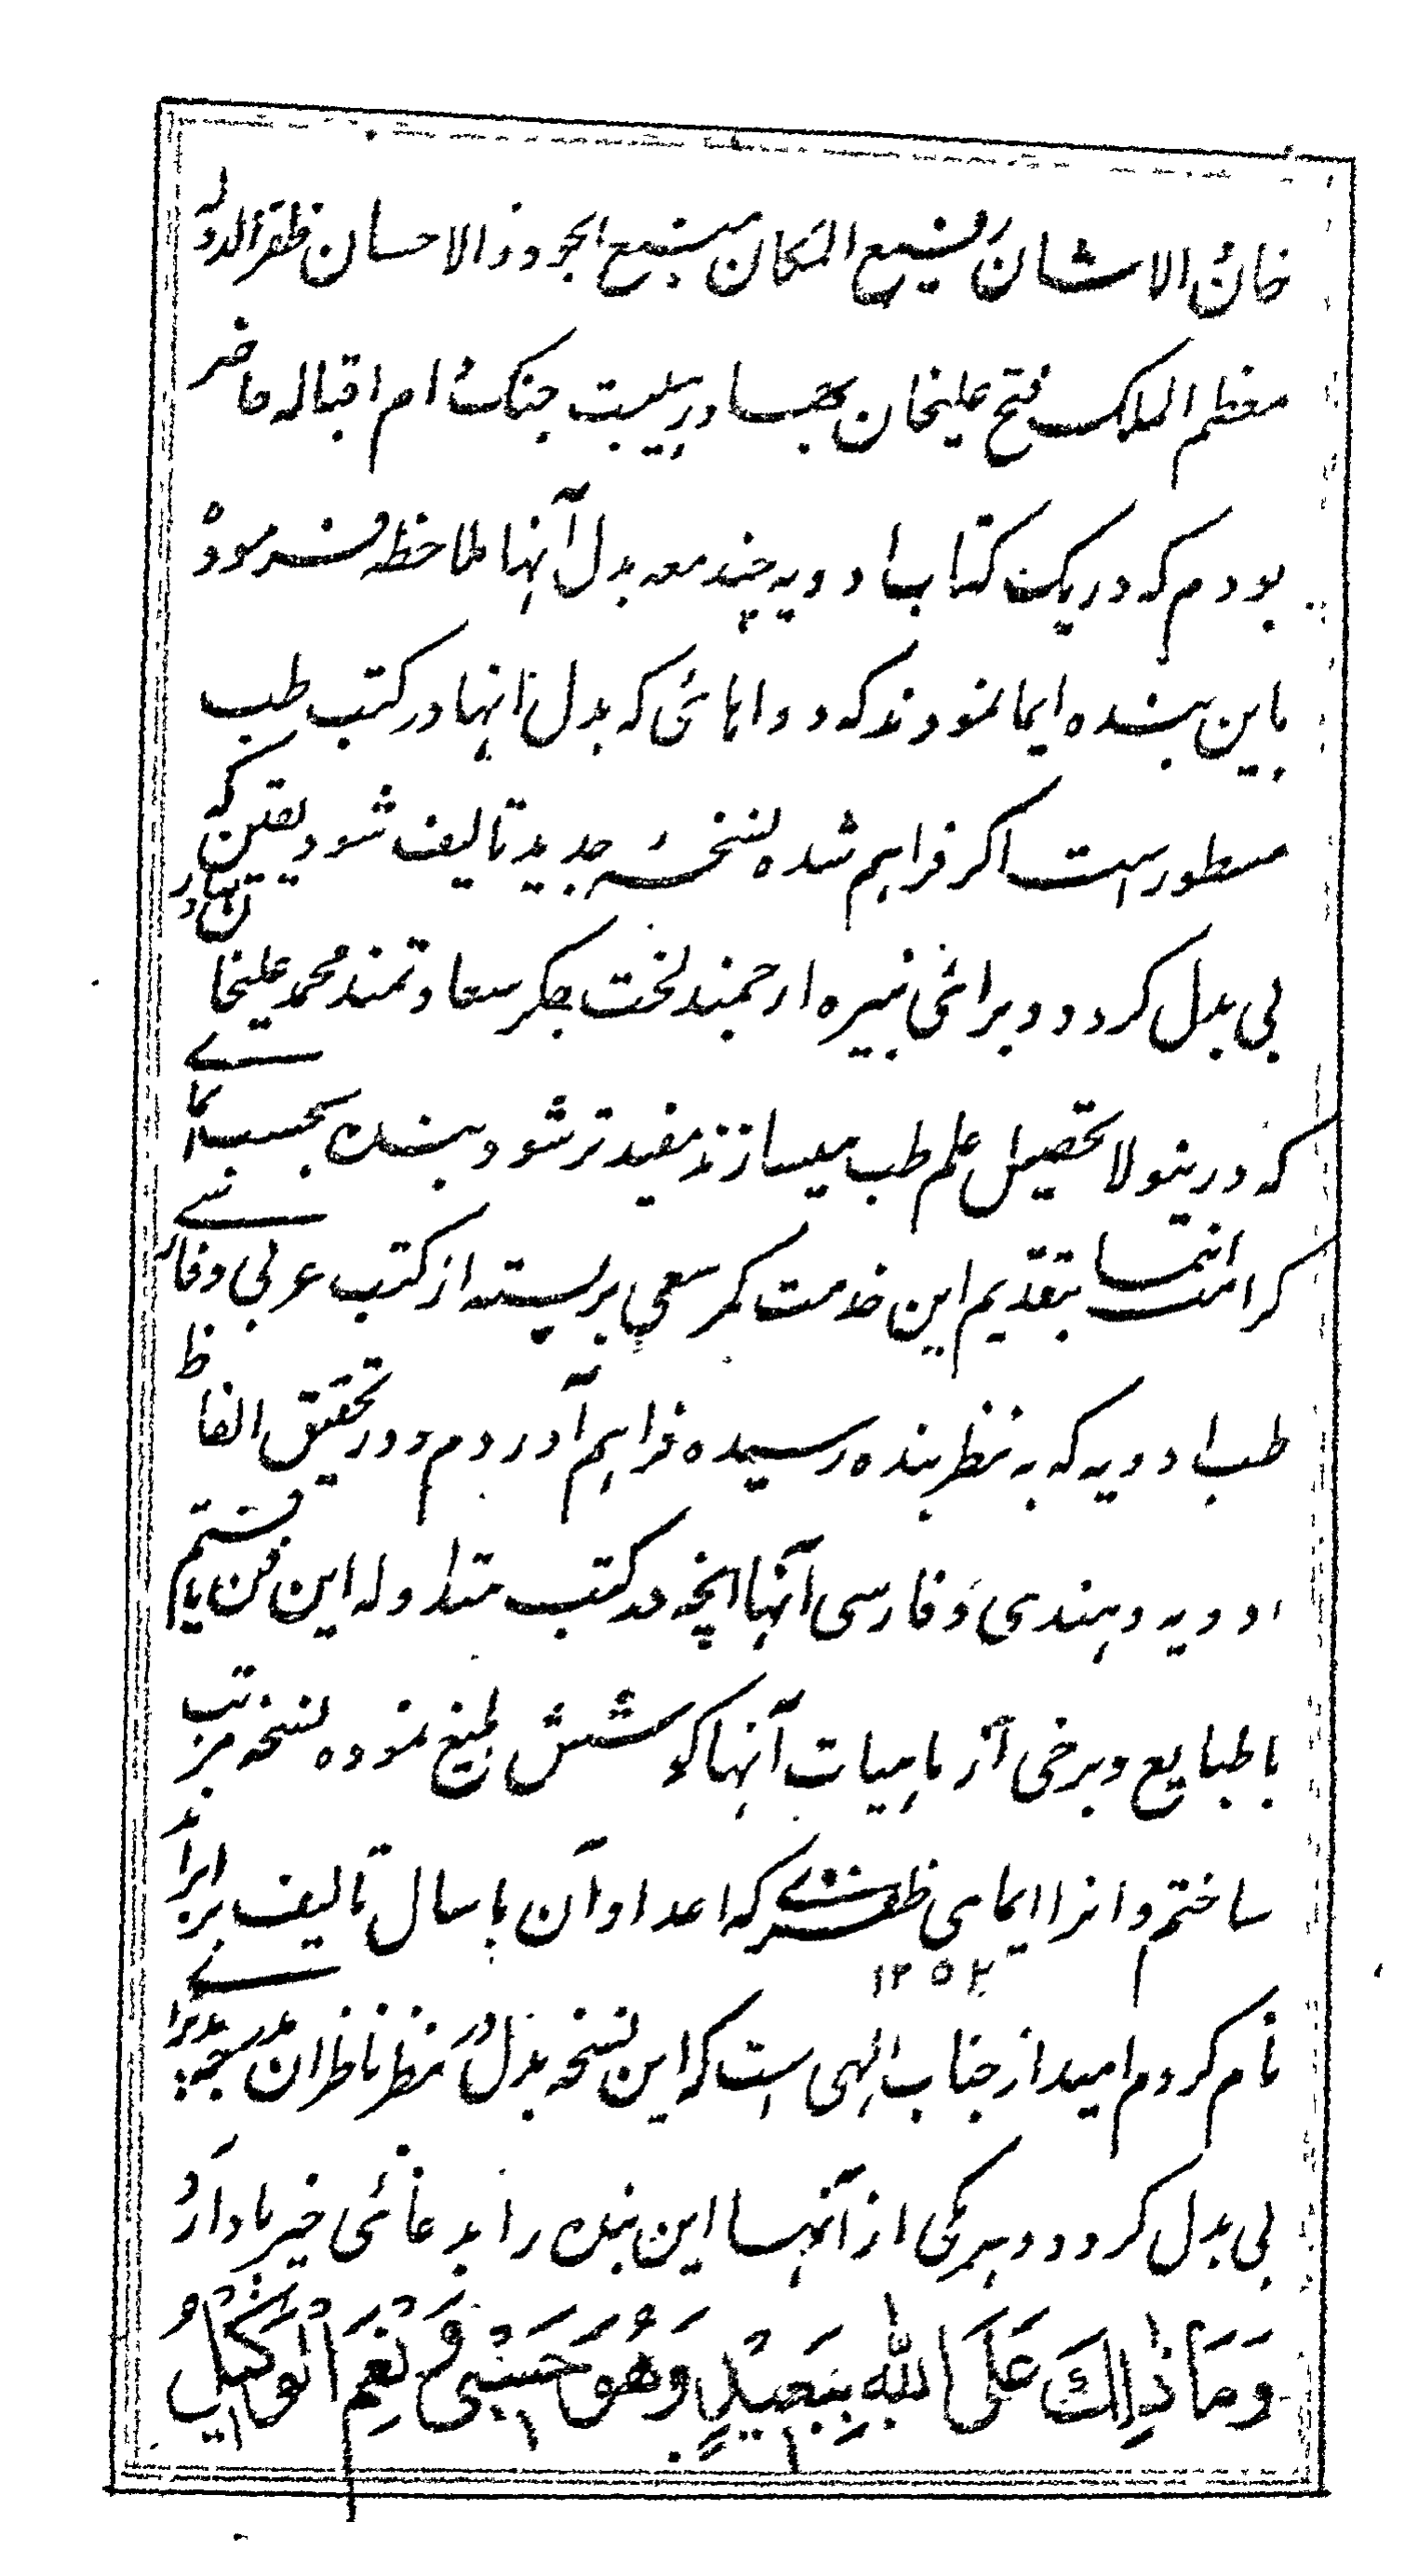 خان الاشان رفیع المکان منبع الجود والاحسان ظفر الدوله
معظم الملک فتح علیخان بهادر هیبت جنک دام اقباله حاضر
بودم که در یک کتاب ادویه چند معه بدل آنها ملاحظه فرموده
باین بنده ایما نمودند که دواهائی که بدل انها در کتب طب
مسطور است اکر فراهم شده نسخهٔ جدید تالیف شود یقین که
بی بدل کردد و برائی نبیره ارجمند لخت جکر سعادتمند محمد علیخان بهادر
که درینولا تحصیل علم طب میسازند مفید تر شود بنده بحسب ایمای
کرامت انتما بتقدیم این خدمت کمر سعی بر بسته از کتب عربی و فارسی
طب ادویه که به نظر بنده رسیده فراهم آوردم و در تحقیق الفاظ
ادویه و هندی و فارسی آنها انچه در کتب متداوله این فن یافتم
با طبایع و برخی از ماهیات آنها کوشش بلیغ نموده نسخه مرتب
ساختم و انرا ایمای ظفری که اعداد آن با سال تالیف برابراند
۱۲۵۲
نام کردم امید از جناب الهی است که این نسخه بدل در نظر ناظران بدرجه پذیرای
بی بدل کردد و هریکی از آنها این بنده را بدعائی خیر یاد آرد
وَمَا ذٰلِكَ عَلَى اللّٰهِ بِبَعِيْدٍ وَهُوَ حَسْبِيْ وَنِعْمَ الْوَكِيْلُ